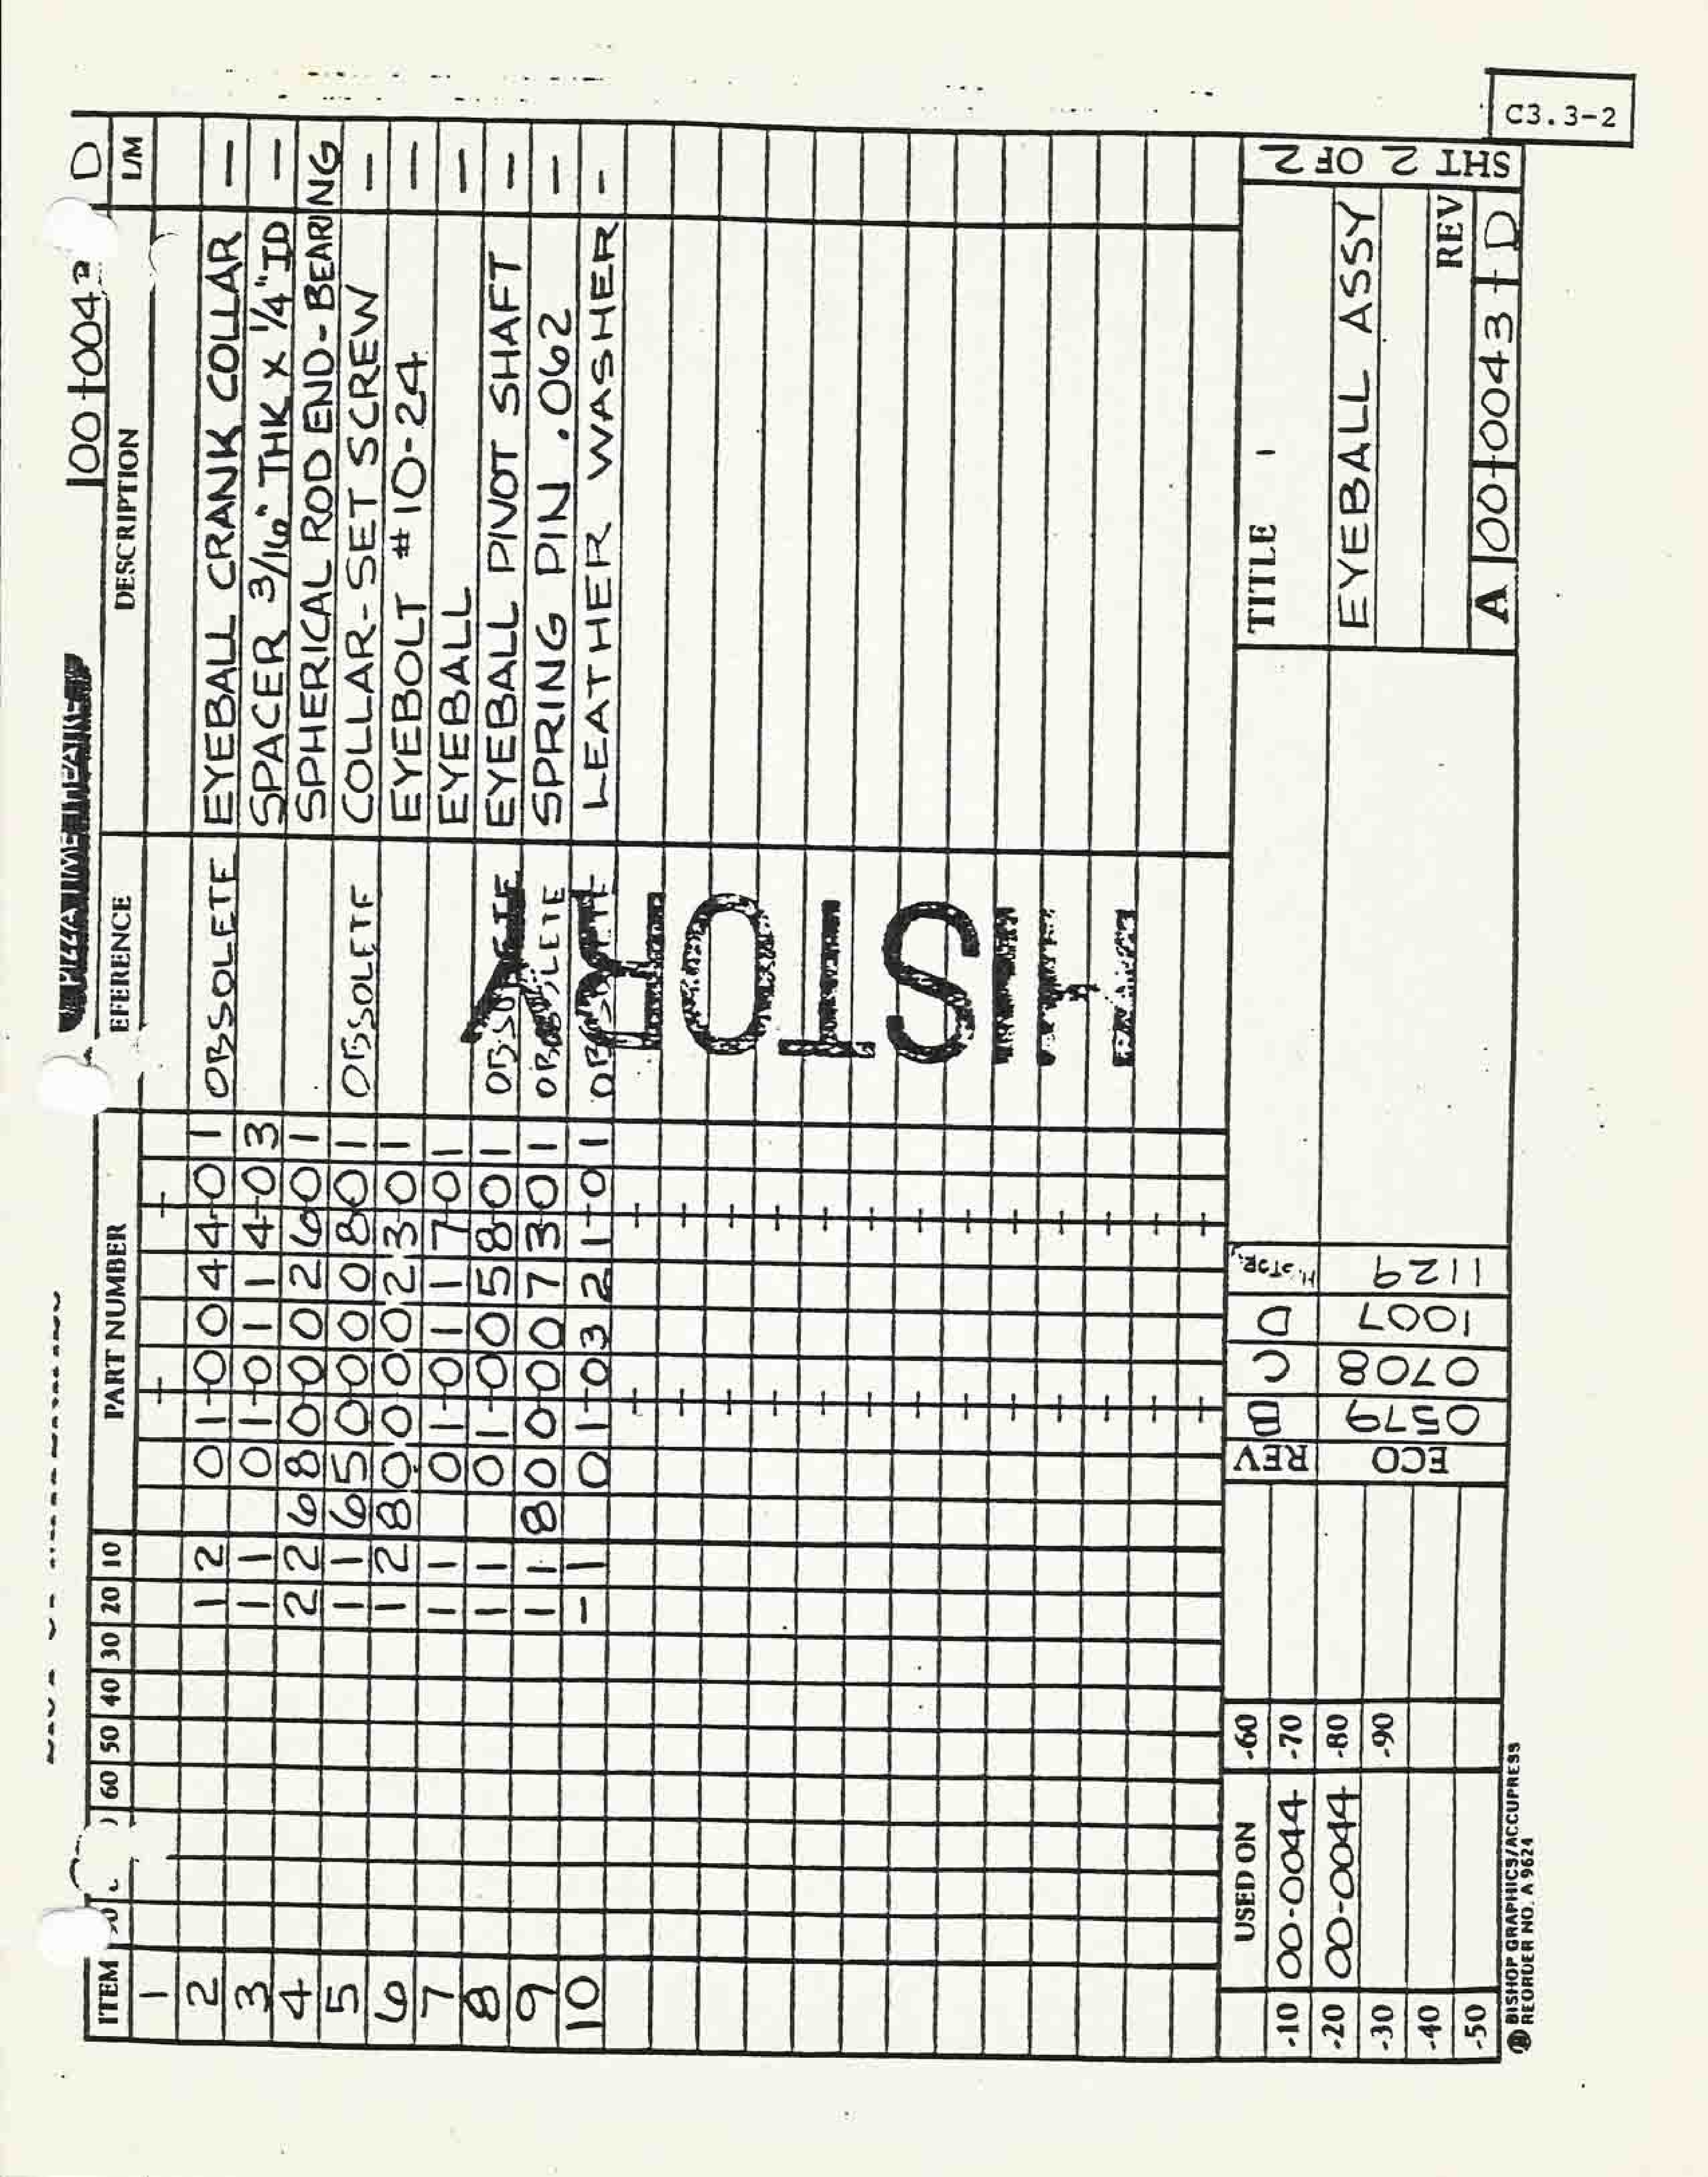 C3.3-2
00-0043 D
ITEM 60 50 40 30 20 10 PART NUMBER EFERENCE DESCRIPTION L/M
1
2 1 2 01-0044-01 OBSOLETE EYEBALL CRANK COLLAR —
3 1 1 01-0114-03 SPACER 3/16" THK X 1/4" ID —
4 2 2 680-0026-01 SPHERICAL ROD END-BEARING
5 1 1 650-0008-01 OBSOLETE COLLAR-SET SCREW —
6 1 2 800-0023-01 EYEBOLT #10-24 —
7 1 1 01-0117-01 EYEBALL —
8 1 1 01-0058-01 OBSOLETE EYEBALL PIVOT SHAFT —
9 1 1 800-0073-01 OBSOLETE SPRING PIN .062 —
10 - 1 01-0321-01 OBSOLETE LEATHER WASHER -
HISTORY
USED ON
-10 00-0044 -60
-20 00-0044 -70
-30 -80
-40 -90
-50
REV B C D HISTOR.
ECO 0579 0708 1007 1129
TITLE
EYEBALL ASSY
REV
A 00-0043 D
SHT 2 OF 2
BISHOP GRAPHICS/ACCUPRESS
REORDER NO. A 9624